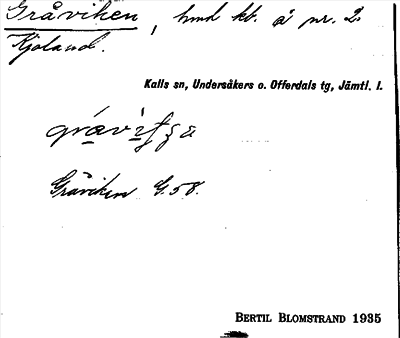 Gråviken, hmd kb. å nr. 2
Kjoland.
Kalls sn, Undersåkers o. Offerdals tg, Jämtl. l.
Gråviken G.58.
BERTIL BLOMSTRAND 1935